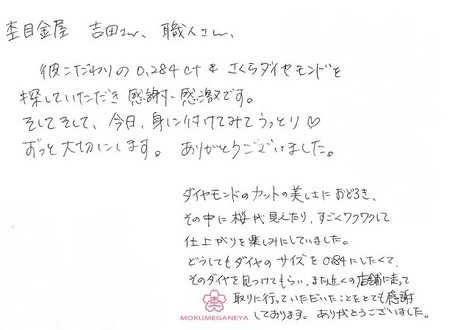 杢目金屋 吉田さん、職人さん、
彼こだわりの0.284ct & さくらダイヤモンドを
探していただき感謝・感激です。
そしてそして、今日、身に付けてみてうっとり♡
ずっと大切にします。ありがとうございました。
ダイヤモンドのカットの美しさにおどろき、
その中に桜が見えたり、すごくワクワクして
仕上がりを楽しみにしていました。
どうしてもダイヤのサイズを0.284にしたくて、
そのダイヤを見つけてもらい、また近くの店舗に走って
取りに行っていただいたことをとても感謝
しております。ありがとうございました。
MOKUMEGANEYA